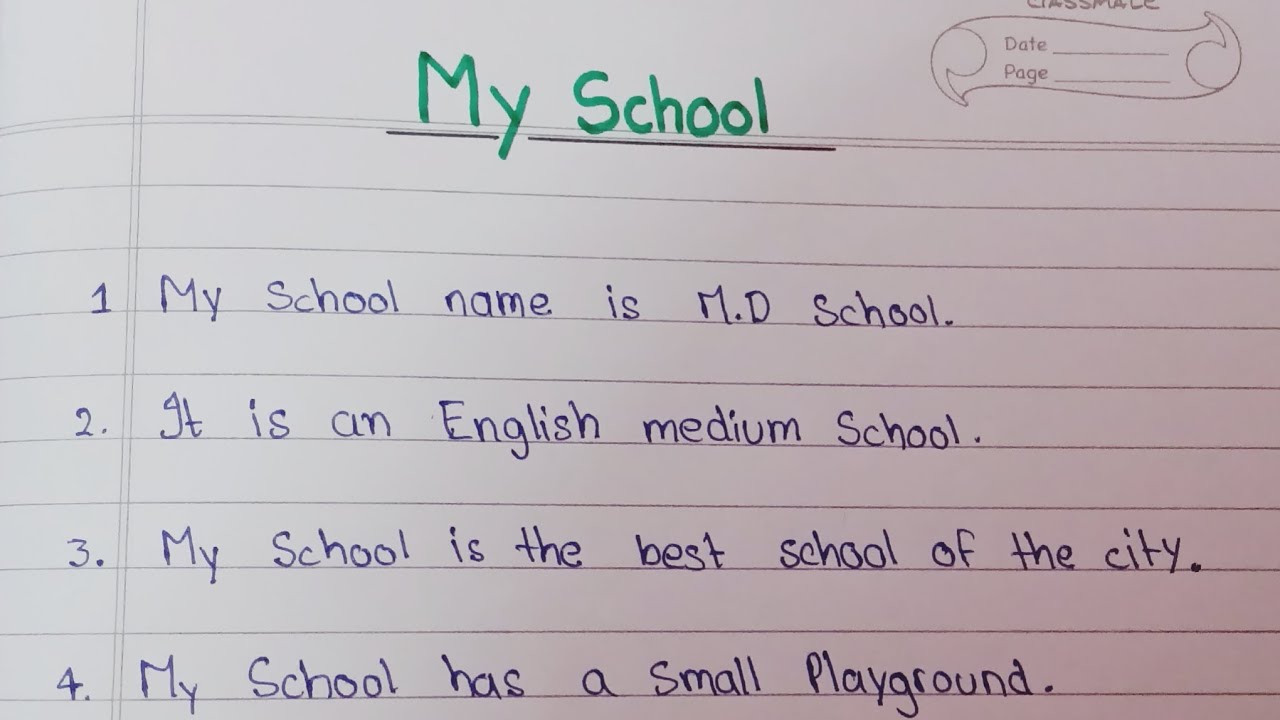 CLASSMATE
Date
Page
My School
1 My School name is M.D School.
2. It is an English medium School.
3. My School is the best school of the city.
4. My School has a Small Playground.